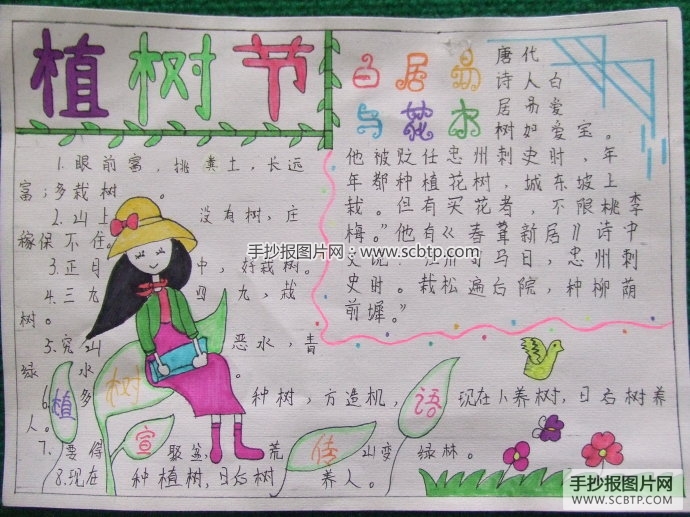 植树节
1.眼前富，挑粪土，长远
富；多栽树。
2.山上 没有树，庄
稼保不住。
3.正月 中，好栽树。
4.三九 四九，栽
树。
5.穷山 恶水，青
绿 水。
6. 多 种树，方造机， 现在小养树，日后树养
人。
7.要得 聚盆， 荒 山变 绿林。
8.现在 种植树，日后树 养人。
植树宣传语
白居易
与花木
唐代
诗人白
居易爱
树如爱宝。
他被贬任忠州刺史时，年
年都种植花树，城东坡上
栽。但有买花者，不限桃李
梅。”他有《春葺新居》诗中
马日，忠州刺
史时。栽松遍台院，种柳荫
前墀。”
手抄报图片网 www.scbtp.com
手抄报图片网
WWW.SCBTP.COM